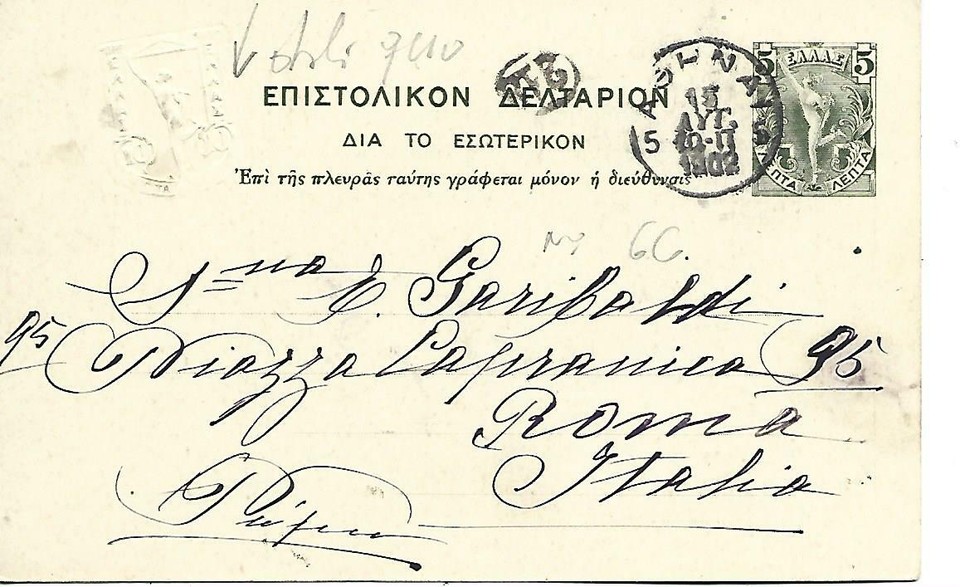 ΕΠΙΣΤΟΛΙΚΟΝ ΔΕΛΤΑΡΙΟΝ
ΔΙΑ ΤΟ ΕΣΩΤΕΡΙΚΟΝ
Ἐπὶ τῆς πλευρᾶς ταύτης γράφεται μόνον ἡ διεύθυνσις
ΑΘΗΝΑΙ
15
ΑΥΓ.
5 10-11 5
1902
5 ΕΛΛΑΣ 5
ΛΕΠΤΑ ΛΕΠΤΑ
66.
Sna E. Garibaldi
95 Piazza Capranica 95
Roma
Italia
Ρώμην